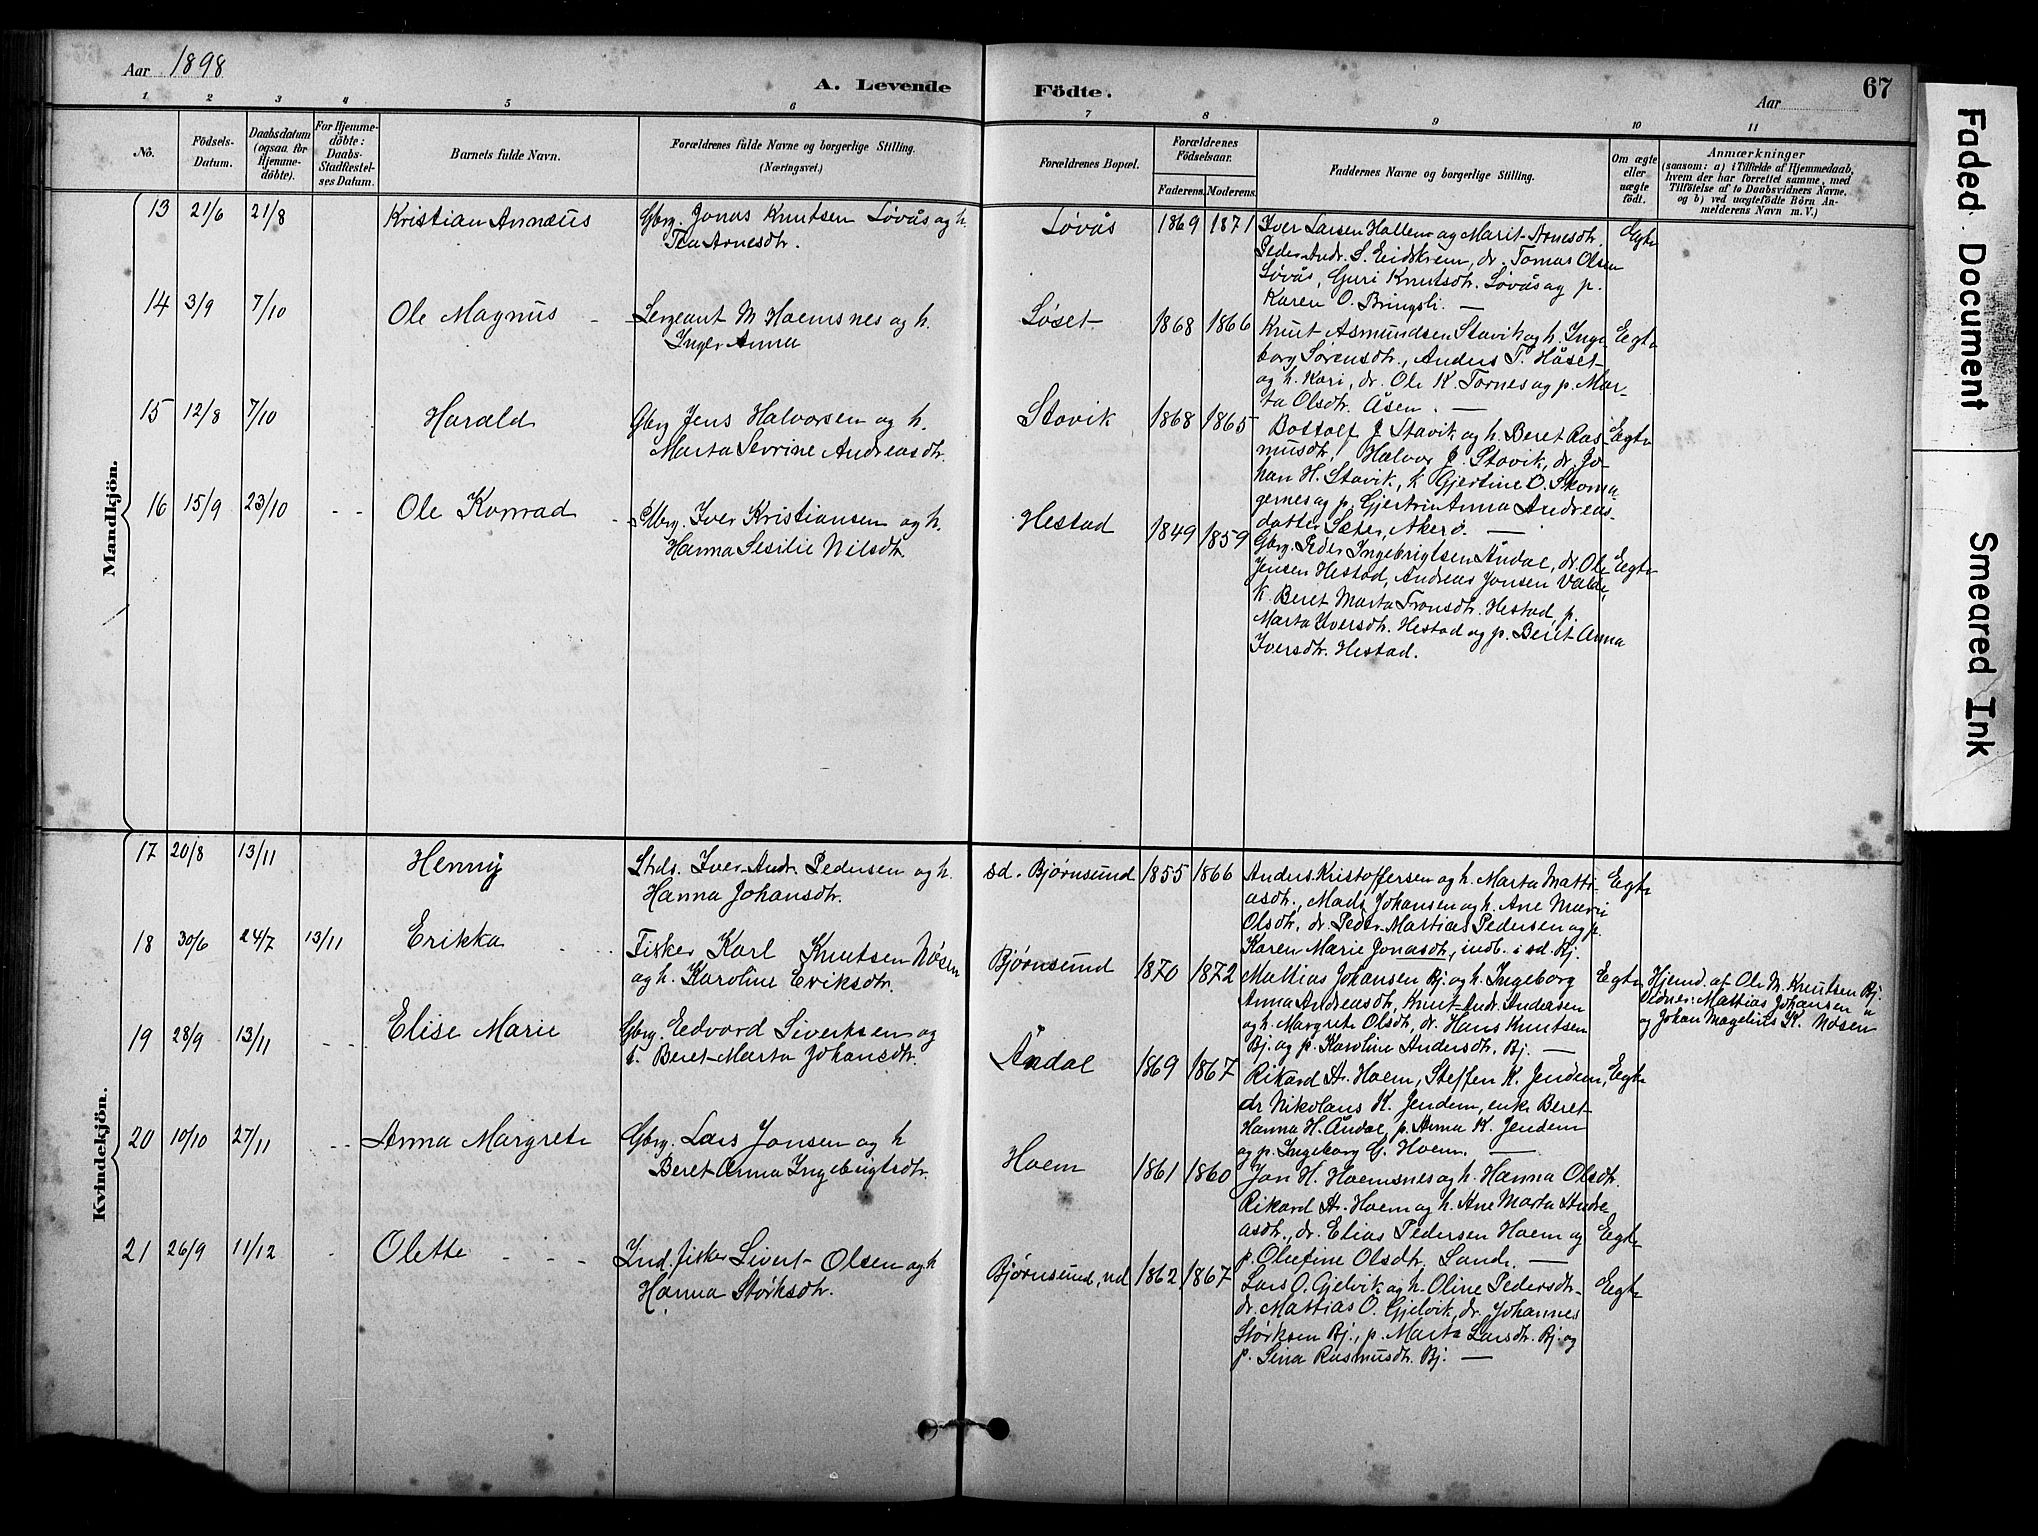 Aar 1898
A. Levende Födte.
Aar
67
1 2 3 4 5 6 7 8 9 10 11
No.
Födsels-
Datum.
Daabsdatum
(ogsaa for
Hjemme-
döbte).
For Hjemme-
döbte:
Daabs-
Stadfæstel-
ses Datum.
Barnets fulde Navn.
Forældrenes fulde Navne og borgerlige Stilling.
(Næringsvei.)
Forældrenes Bopæl.
Forældrenes
Födselsaar.
Faderens. Moderens.
Faddernes Navne og borgerlige Stilling.
Om ægte
eller
uægte
födt.
Anmærkninger
(saasom: a) i Tilfælde af Hjemmedaab,
hvem der har forrettet samme, med
Tilföielse af to Daabsvidners Navne,
og b) ved uægtefödte Börn An-
melderens Navn m. V.)
Mandkjön.
13 21/6 21/8 Kristian Annæus
Gbrg. Jonas Knutsen Løvås og h.
Arnesdtr.
Løvås 1869 1871
Iver Larsen Hallem og Marit Arnesdtr.
Peder Andr. S. Eidskrem, dr. Tomas Olsen
Løvås, Guri Knutsdtr. Løvås og p.
Karen O. Bringsli. —
Egte
14 3/9 7/10 Ole Magnus
Sergeant M Hoemsnes og h.
Inger Anna
Løset 1868 1866
Knut Asmundsen Stavik og h. Inge-
borg Sørensdtr., Anders T. Håset
og h. Kari, dr. Ole K. Tornes og p. Mar-
ta Olsdtr. Åsen. —
Egte
15 12/8 7/10 Harald
Gbrg Jens Halvorsen og h.
Marta Sevrine Andreasdtr.
Stavik 1868 1865
Bottolf J Stavik og h. Beret Ras-
musdtr, Halvor J. Stavik, dr. Jo-
han H. Stavik, k Gjertine O. Skoma-
gernes og p. Gjertrine Anna Andreas-
datter Sæter, Akerø. —
Egte
16 15/9 23/10 Ole Konrad
Gbrg. Iver Kristiansen og h.
Hanna Sesilie Nilsdtr.
Hestad 1849 1859
Gbrg. Peder Ingebrigtsen Åndal, dr. Ole
Jensen Hestad, Andreas Jonsen Valde,
k. Beret Marta Tronsdtr. Hestad, p.
Marta Iversdtr. Hestad og p. Beret Anna
Iversdtr. Hestad.
Egte
Kvindekjön.
17 20/8 13/11 Henny
Strds. Iver Andr. Pedersen og h.
Hanna Johansdtr.
sd. Bjørnsund 1855 1866
Anders Kristoffersen og h. Marta Matti-
asdtr., Mads Johansen og h. Ane Marie
Olsdtr. dr. Peder Mattias Pedersen og p.
Karen Marie Jonasdtr, indb. i sd. Bj.
Egte
18 30/6 24/7 13/11 Erikka
Fisker Karl Knutsen Nøsen
og h. Karoline Eriksdtr.
Bjørnsund 1870 1872
Mattias Johansen Bj. og h. Ingeborg
Anna Andreasdtr, Knut Andr. Andersen
og h. Margrete Olsdtr, dr. Hans Knutsen
Bj. og p. Karoline Andersdtr. Bj. —
Egte
Hjemd. af Ole M. Knutsen Bj.
Vidner: Mattias Johansen "
og Johan Magelius K. Nøsen
19 28/9 13/11 Elise Marie
Gbrg. Edvard Sivertsen og
h. Beret Marta Johansdtr.
Åndal 1869 1867
Rikard A. Hoem, Steffen K. Jendem,
dr Nikolaus K. Jendem, enke Beret
Hanna H. Åndal, p. Anna K. Jendem
og p. Ingeborg C. Hoem. —
Egte
20 10/10 27/11 Anna Margrete
Gbrg. Lars Jonsen og h
Beret Anna Ingebrigtsdtr.
Hoem 1861 1860
Jon H. Hoemsnes og h. Hanna Olsdtr.
Rikard A. Hoem og h. Ane Marta Andre-
asdtr., dr. Elias Pedersen Hoem og
p. Olufine Olsdtr, Lande. —
Egte
21 26/9 11/12 Olette
Ind. fisker Sivert Olsen og h
Hanna Størksdtr.
Bjørnsund, nd 1862 1867
Lars O. Gjelvik og h. Oline Pedersdtr.
dr. Mattias O. Gjelvik, dr. Johannes
Størksen Bj., p. Marta Larsdtr. Bj. og
p. Sina Rasmusdtr. Bj. —
Egte
Faded Document
Smeared Ink